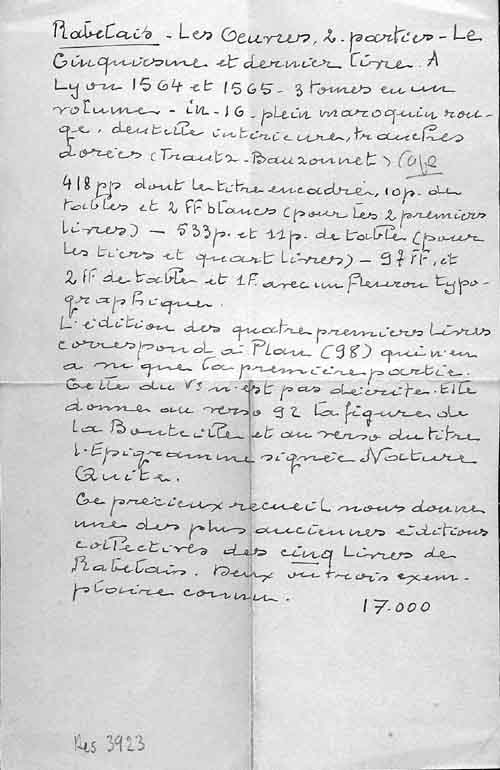 Rabelais - Les Oeuvres, 2. parties - Le
Cinquiesme et dernier livre. A
Lyon 1564 et 1565 - 3 tomes en un
volume - in-16 - plein maroquin rou-
ge, dentelle intérieure, tranches
dorées (Trautz-Bauzonnet)
418 pp dont le titre encadré, 10 p. de
tables et 2 ff blancs (pour les 2 premiers
livres) — 533 p. et 11 p. de table (pour
les tiers et quart livres) - 97 ff. et
2 ff de table et 1 f. avec un fleuron typo-
graphique.
L'édition des quatre premiers livres
correspond à Plan (98) qui n'en
a vu que la première partie.
Celle du Vs n'est pas décrite. Elle
donne au verso 92 la figure de
la Bouteille et au verso du titre
l'Epigramme signée Nature
Quite.
Ce précieux recueil nous donne
une des plus anciennes éditions
collectives des cinq Livres de
Rabelais. Deux ou trois exem-
plaire connu. 17.000
Res 3923